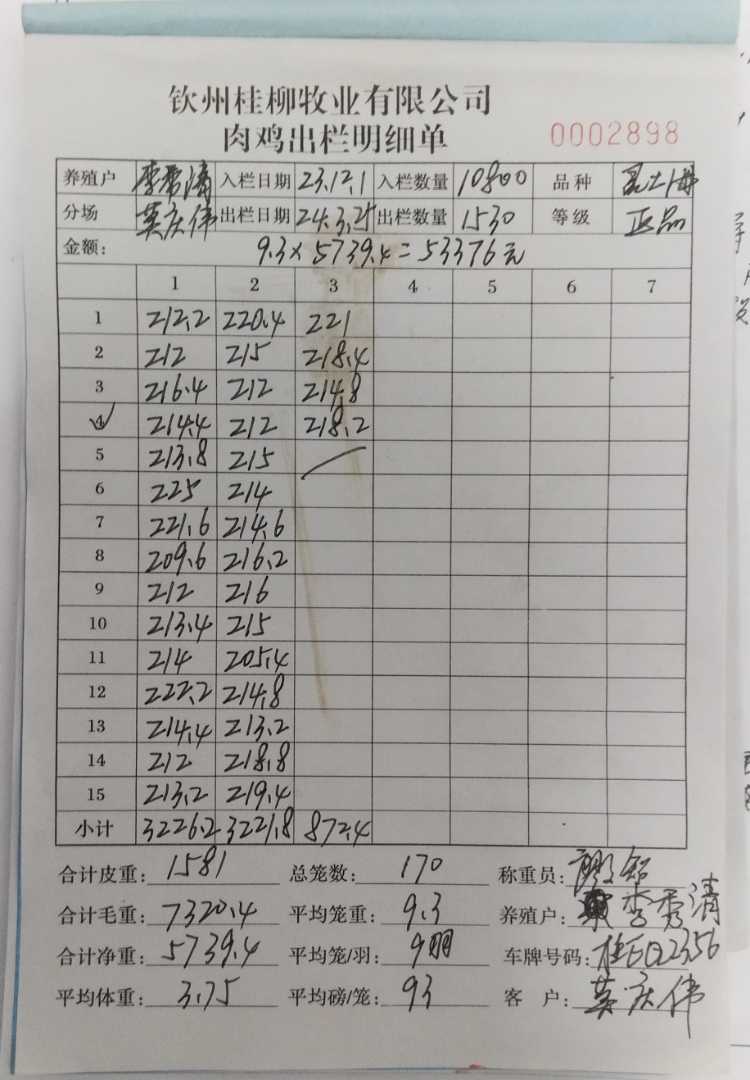 钦州桂柳牧业有限公司
肉鸡出栏明细单 0002898
养殖户 李秀清 入栏日期 23.12.1 入栏数量 10800 品种
分场 莫庆伟 出栏日期 24.3.25 出栏数量 1530 等级 正品
金额: 9.3×5739.4=53376元
1 2 3 4 5 6 7
1 212.2 220.4 221
2 212 215 218.4
3 216.4 212 214.8
4 214.4 212 218.2
5 213.8 215
6 225 214
7 221.6 214.6
8 209.6 216.2
9 212 216
10 213.4 215
11 214 205.4
12 222.2 214.8
13 214.4 213.2
14 212 218.8
15 213.2 219.4
小计 3226.2 3221.8 872.4
合计皮重: 1581 总笼数: 170 称重员:
合计毛重: 7320.4 平均笼重: 9.3 养殖户: 李秀清
合计净重: 5739.4 平均笼/羽: 9羽 车牌号码:
平均体重: 3.75 平均磅/笼: 93 客户: 莫庆伟